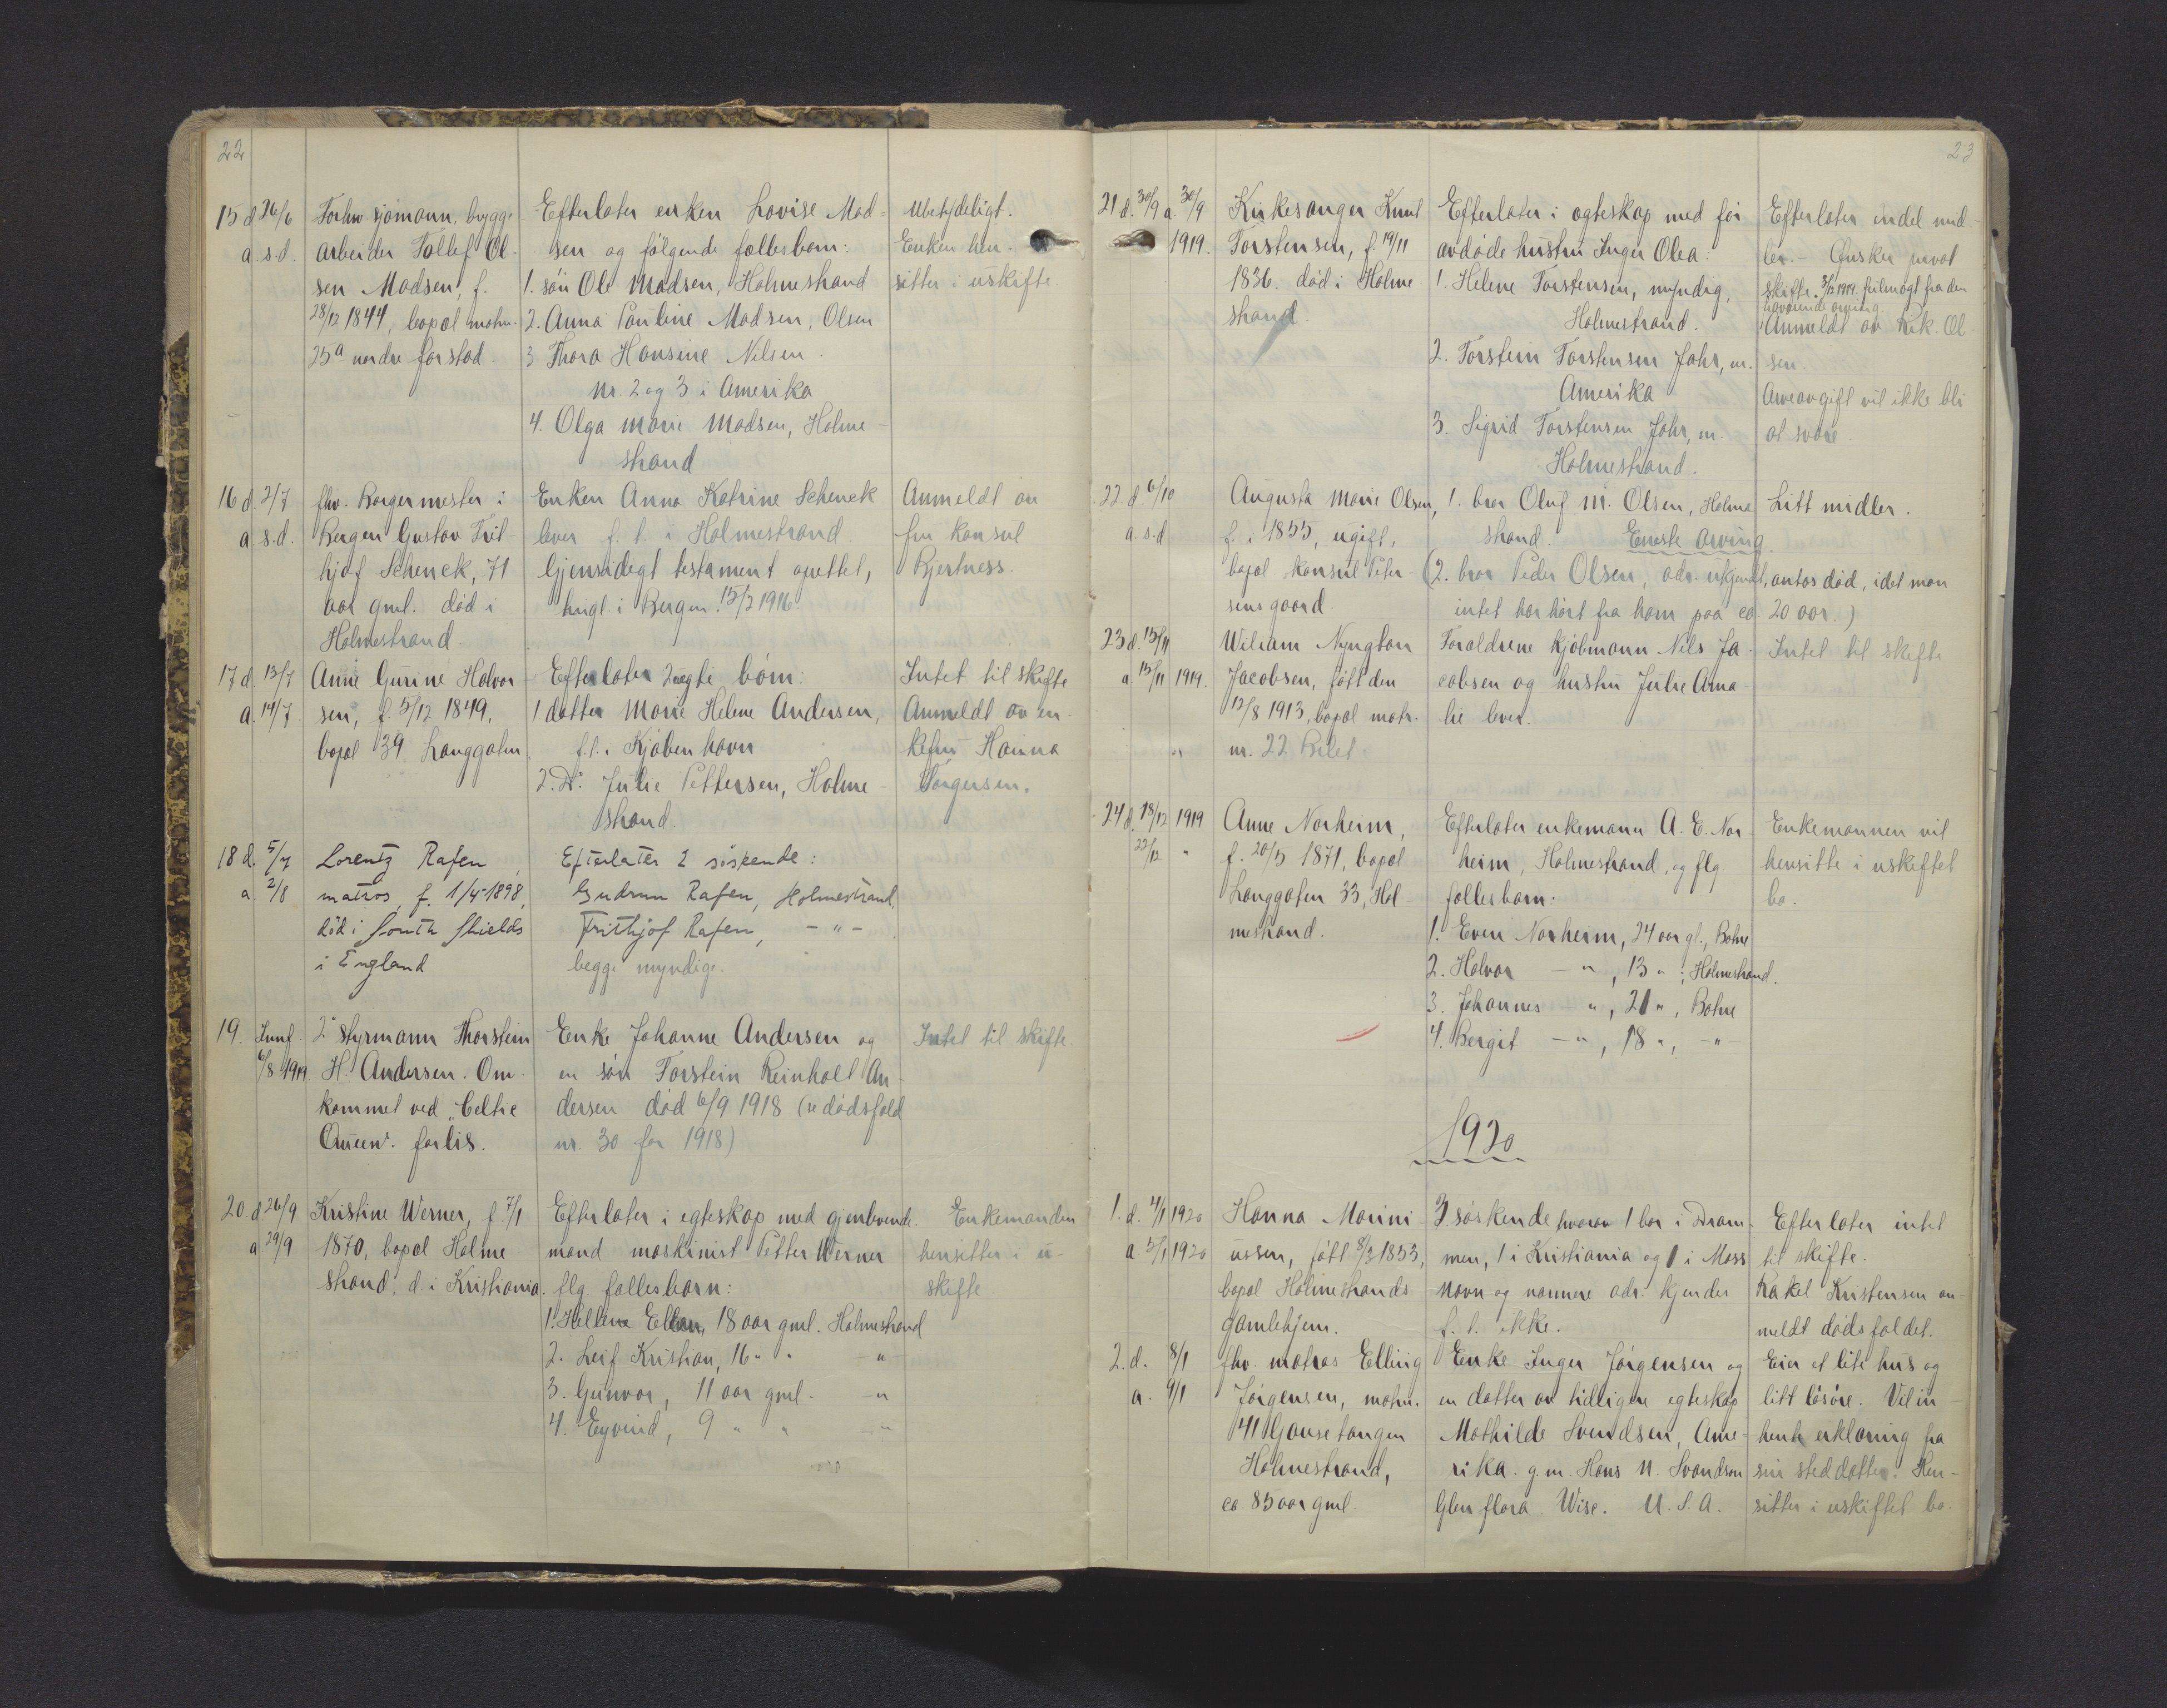 22
15 d 26/6 Forhv sjømann, brygge- Efterlater enken Lovise Mad- Ubetydeligt.
a. s.d. arbeider Tollef Ol- sen og følgende fællesbarn: Enken hen-
sen Madsen, f. 1. søn Ole Madsen, Holmestrand sitter i uskifte.
28/12 1844, bopæl matr. 2. Anna Pauline Madsen, Olsen
25a nordre forstad. 3 Thora Hansine Nilsen.
Nr. 2 og 3 i Amerika
4. Olga Marie Madsen, Holme-
strand
16 d. 2/7 fhv. Borgermester i Enken Anna Katrine Schenck Anmeldt av
a. s.d. Bergen Gustav Frit- lever f. t. i Holmestrand. fru konsul
hjof Schenck, 71 Gjensidigt testament oprettet, Bjertness.
aar gml. død i tingl. i Bergen 15/2 1916
Holmestrand
17 d. 13/7 Anne Gurine Halvor- Efterlater 2 uegte børn: Intet til skifte
a. 14/7 sen, f. 5/12 1849, 1 datter Marie Helene Andersen, Anmeldt av en-
bopæl 39 Langgaten. f.t. i Kjøbenhavn kefru Hanna
2. Do. Julie Pettersen, Holme- Torgersen.
strand.
18 d. 5/7 Lorentz Rafen, Efterlater 2 søskende:
a 2/8 matros, f. 1/4-1898, Gudrun Rafen, Holmestrand.
død i South Shields Frithjof Rafen, -"-
i England begge myndige.
19. Innf. 2' styrmann Thorstein Enke Johanne Andersen og Intet til skifte.
6/8 1919. H. Andersen. Om- en søn Torstein Reinholt An-
kommet ved "Celtic dersen død 6/9 1918 (se dødsfald
Queen". forlis. nr. 30 for 1918)
20. d 26/9 Kristine Werner, f. 7/1 Efterlater i egteskap med gjenlevende Enkemanden
a 29/9 1870, bopæl Holme- mand maskinist Petter Werner hensitter i u-
strand, d. i Kristiania. flg. fællesbarn: skifte
1. Hellene 18 aar gml. Holmestrand
2. Leif Kristian, 16 " " "
3. Gunvor, 11 aar gml. - "
4. Eyvind, 9 " " -"
23
21 d. 30/9 a. 30/9 Kirkesanger Knut Efterlater i egteskap med før Efterlater endel mid-
1919. Torstensen, f. 19/11 avdøde hustru Inger Olea: ler. - Ønsker privat
1836. død i Holme- 1. Helene Torstensen, myndig, skifte. 1919. fuldmagt fra den
strand. Holmestrand. Anmeldt av Rik. Ol-
2. Torstein Torstensen Johr, m. sen.
Amerika Arveavgift vil ikke bli
3. Sigrid Torstensen Johr, m. at svare.
Holmestrand.
22. d. 6/10 Augusta Marie Olsen, 1. bror Oluf M. Olsen, Holme- Litt midler.
a. s.d f. i 1855, ugift, strand. Eneste arving.
bopæl konsul Peter- (2. bror Peder Olsen, adr. ukjendt, antas død, idet man
sens gaard. intet har hørt fra ham paa ca. 20 aar.)
23 d. 15/11 Wiliam Nyngton Foraldrene kjøbmann Nils Ja- Intet til skifte
a. 15/11 1919. Jacobsen, født den cobsen og hustru Julie Ama-
12/8 1913, bopæl matr. lie lever.
" nr. 22
24 d. 18/12 1919 Anne Norheim, Efterlater enkemann A. E. Nor- Enkemannen vil
22/12 " f. 20/5 1871, bopæl heim, Holmestrand, og flg. hensitte i uskiftet
Langgaten 33, Hol- fællesbarn: bo.
mestrand. 1. Even Norheim, 24 aar gl., Botne
2. Halvor -", 13 ", Holmestrand.
3. Johannes - ", 21 ", Botne
4. Bergit -", 18 ", -"-
1920
1. d. 4/1 1920 Hanna Marini- 3 søskende hvorav 1 bor i Dram- Efterlater intet
a 5/1 1920 ussen, født 8/3 1853, men, 1 i Kristiania og 1 i Moss til skifte.
bopæl Holmestrands Navn og nærmere adr. kjendes Rakel Kristensen an-
gamlehjem. f. t. ikke. meldt dødsfaldet.
2. d. 8/1 fhv. matros Elling Enke Inger Jørgensen og Eier et lite hus og
a. 9/1 Jørgensen, matr. en datter av tidligere egteskap litt løsøre. Vil in-
41 Gausetangen Mathilde Svendsen, Ame- hente erklæring fra
Holmestrand, rika. g.m. Hans N. Svendsen sin steddatter. Hen-
ca 85 aar gml. Glen flora Wisc. U. S. A. sitter i uskiftet bo.